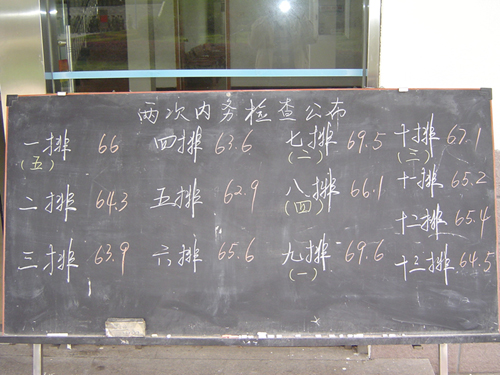 两次内务检查公布
一排 66 四排 63.6 七排 69.5 十排 67.1
(五) (二) (三)
二排 64.3 五排 62.9 八排 66.1 十一排 65.2
(四)
十二排 65.4
三排 63.9 六排 65.6 九排 69.6 十三排 64.5
(一)